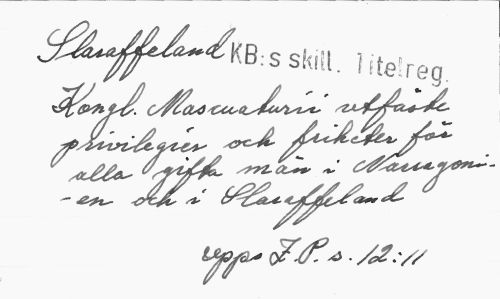 Slaraffeland KB:s skill. Titelreg.
Kongl. Mascuaturii utfäste
privilegier och friheter för
alla gifta män i Narragoni-
-en och i Slaraffeland
upps Z.P. s. 12:11